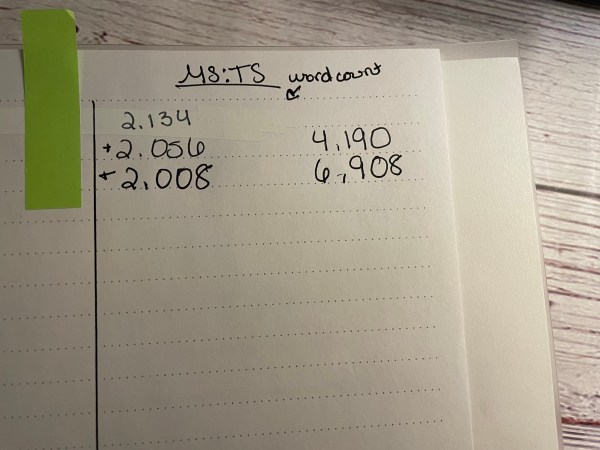 MS:TS word count
2.134
+2.056 4,190
+2.008 6,908